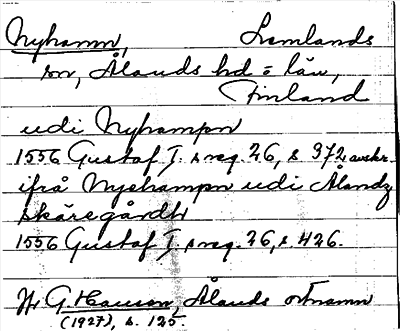 Nyhamn, Lemlands
sn, Ålands hd o län,
Finland
udi Nyhampn
1556 Gustaf I:s reg. 26, s 372, avskr.
ifrå Nyehampn udi Ålandz
skäregårdh
1556 Gustaf I:s reg. 26, s. 426.
Jfr G. Hauson, Ålands ortnamn
(1927), s. 125.